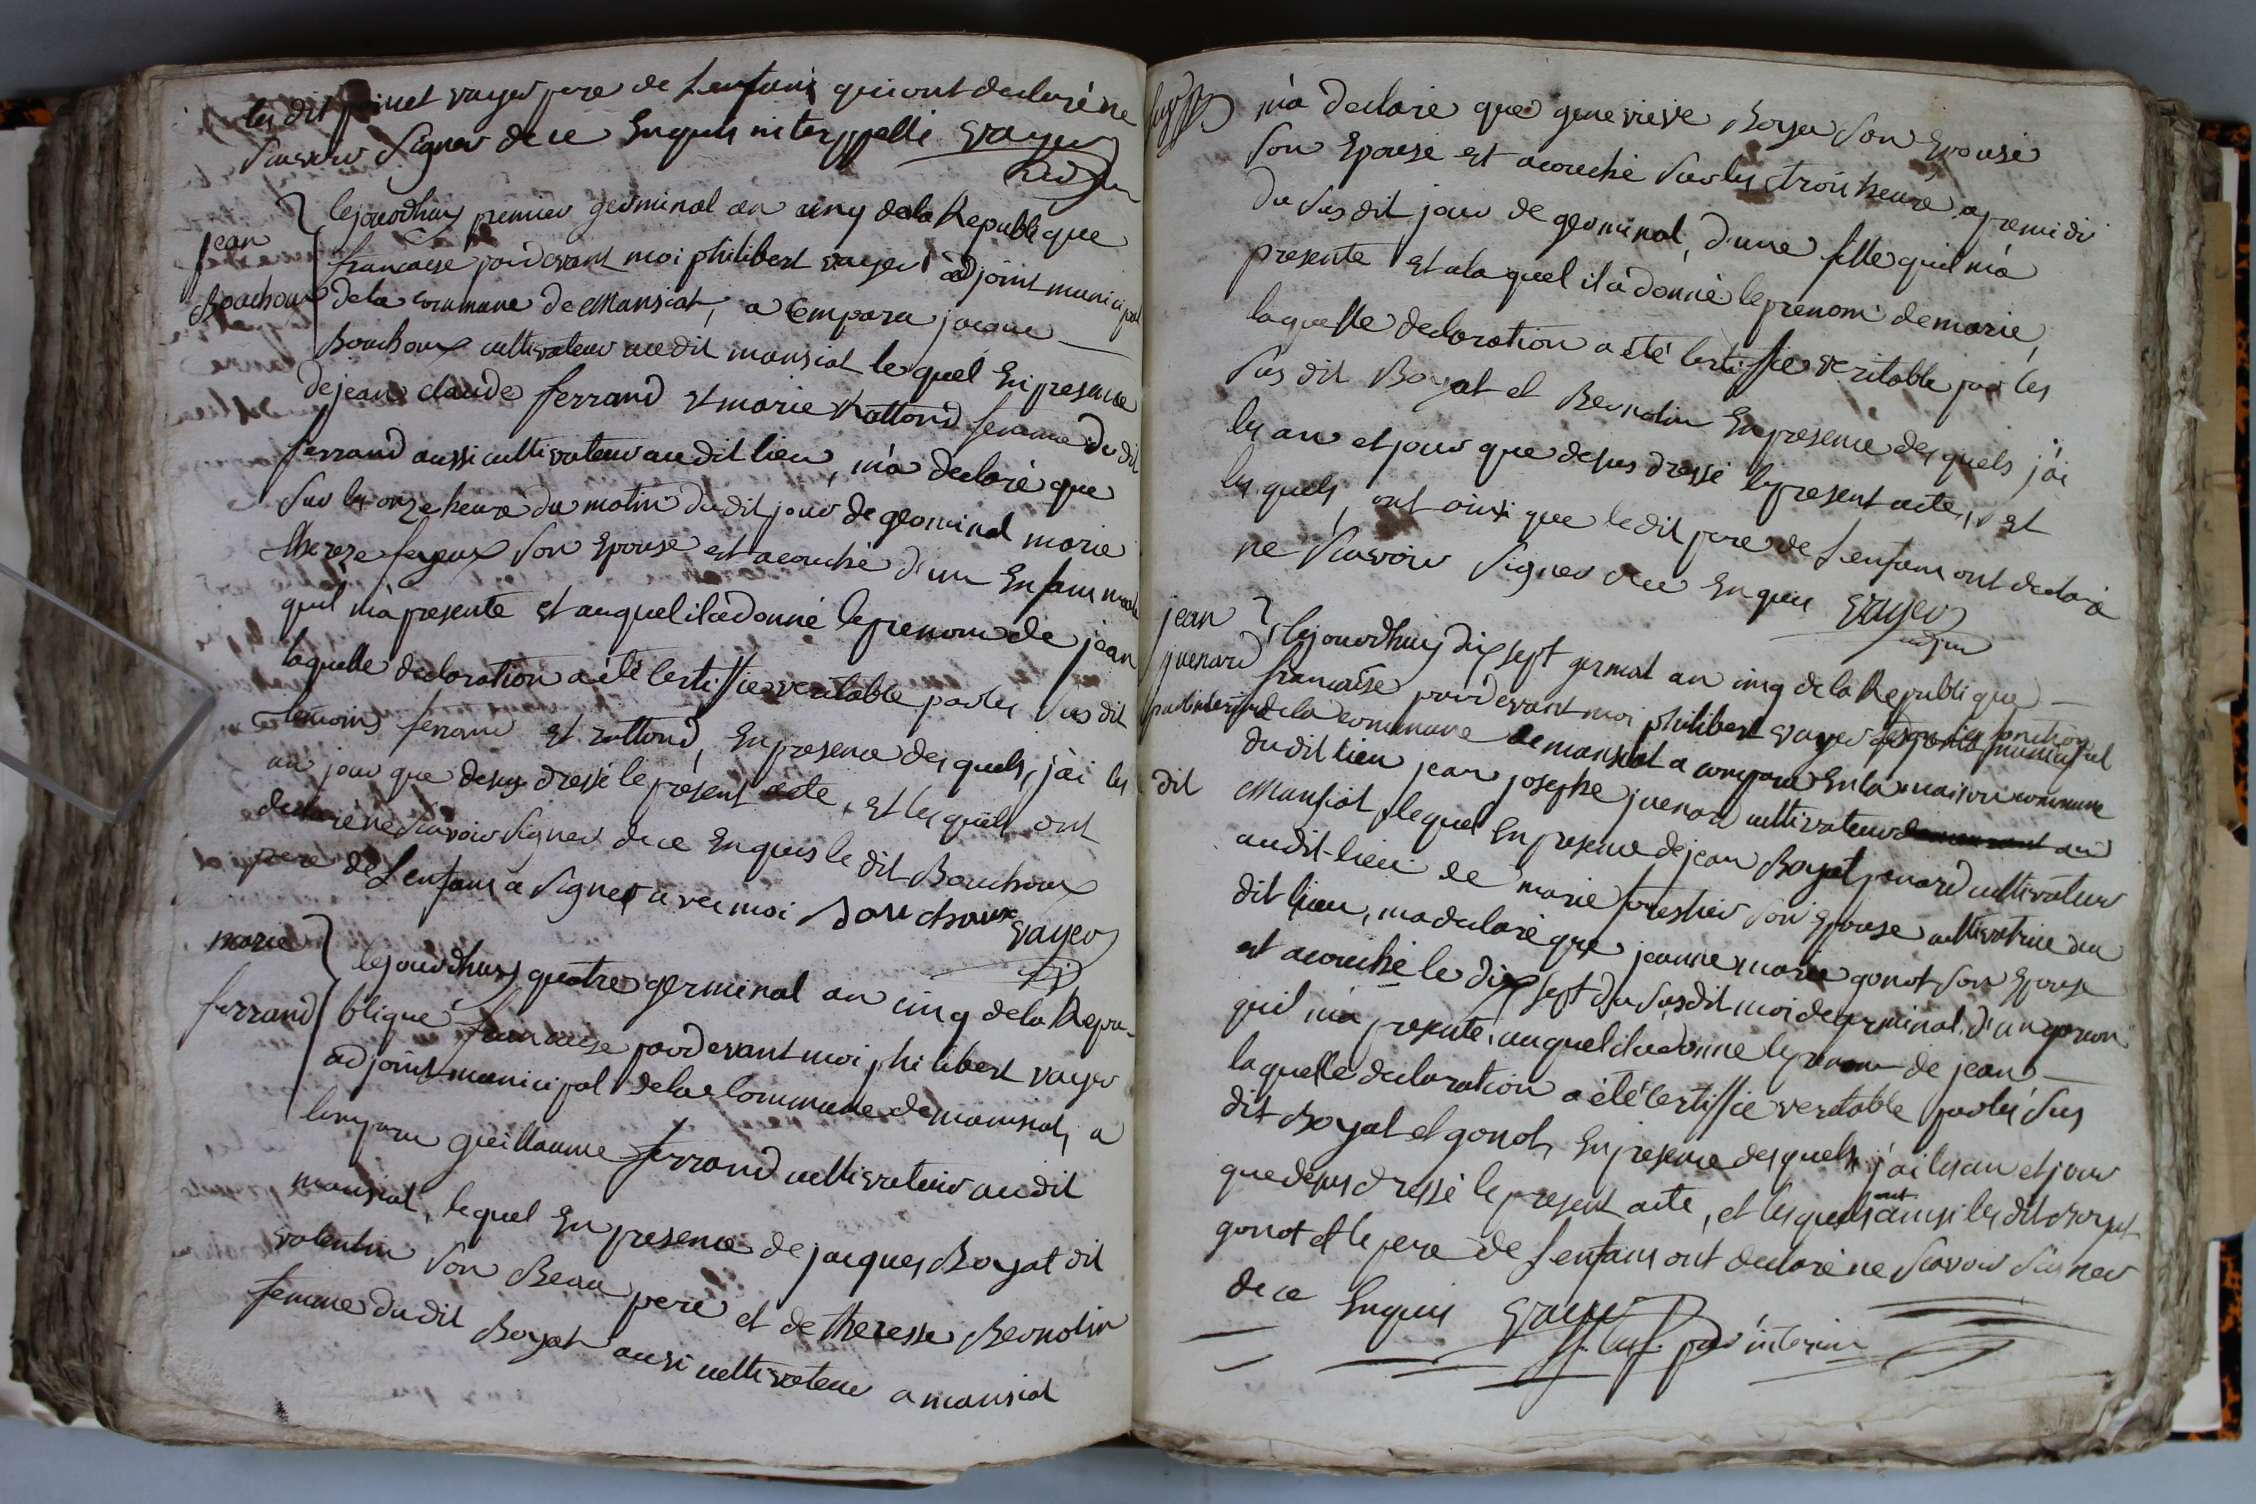 les dit         vayer pere de Lenfans qui ont declaré ne
scavoir signer de ce Enquis interppellé vayer
adjoin
jean
Bouchoux
cejourdhuy premier germinal an cinq dela Republique
francaise pardevant moi philibert vayer adjoint municipal
dela commune de Mansiat, a Comparu jacque
Bouchoux cultivateur audit mansiat lequel En presence
de jean claude ferrand et marie Rattond femme du dit
ferrand aussi cultivateur audit lieu, m'a declaré que
sur les onze heure du matin dudit jour de germinal marie
thereze feyeux son Epouse est acouché d'un Enfans male
quil m'a presente et auquel il a donné le prenom de jean
laquelle declaration a été Certiffie veritable par les sus dit
temoins ferrand et rattond, En presence des quels, j'ai les
an jour que desus dressé le present acte, et lesquels ont
declaré ne scavoir signer de ce Enquis le dit Bouchoux
pere de Lenfans a signer avec moi Bouchoux
vayer
adj
marie
ferrand
cejourdhuy quatre germinal an cinq dela Repu-
blique francaise pardevant moi philibert vayer
adjoint municipal dela Commune de mansiat, a
Comparu guillaume ferrand cultivateur audit
mansiat, lequel En presence de jacques Boyat dit
valentin son Beau pere et de theresse Bernolin
femme dudit Boyat ausi cultivateur a mansiat
m'a declaré que genevieve Boyat son Epouse
son Epouse est acouché sur les trois heure apremidi
du sus dit jour de germinal, d'une fille quil m'a
presente et a la quel il a donné le prenom de marie,
laquelle declaration a été Certiffie veritable par les
sus dit Boyat et Bernolin En presence des quels j'ai
les an et jour que desus dressé le present acte, et
les quels, ont ainsi que le dit pere de Lenfans ont declaré
ne scavoir signer de ce Enquis vayer
adjoin
jean
juenard
cejourdhuy dix sept germal an cinq dela Republique
francaise pardevant moi philibert vayer
par interim dela commune de mansiat a comparu En la maison commune
dudit lieu jean josephe juenard cultivateur
dit Mansiat, lequel En presence de jean Boyat juenard cultivateur
audit lieu et marie forestier son Epouse cultivatrice du
dit lieu, ma declaré que jeanne marie gonot son Epouse
est acouché le dix sept du susdit moi de germinal, d'un garcon
quil m'a presenté, auquel il a donne le prenom de jean
laquelle declaration a été Certiffie veritable par les sus
dit Boyat et gonot, En presence des quels j'ai les an et jour
que desus dressé le present acte, et les quels ont ainsi les dit Boyat
gonot et le pere de Lenfans ont declaré ne scavoir signer
de ce Enquis vayer
par interim